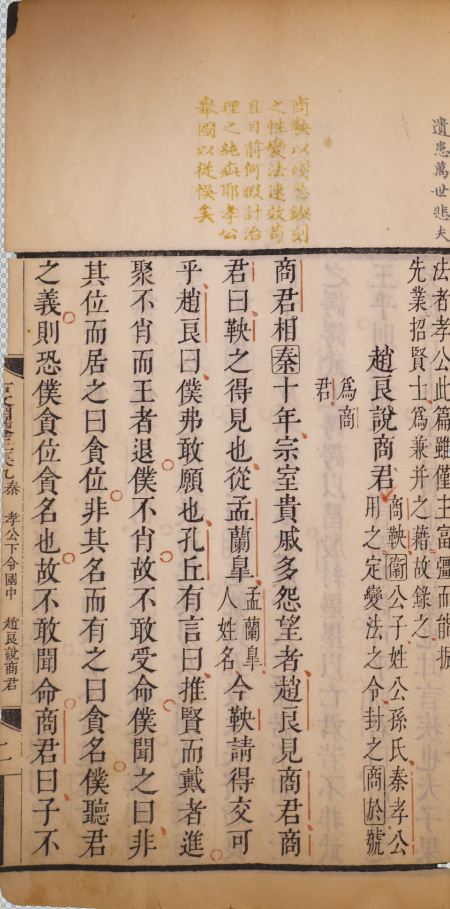 遺患萬世悲夫
商鞅以殘忍刻
之性變法速效苟
且目前何暇計治
理之純疵耶孝公
舉國以從悞矣
法者孝公此篇雖僅主富彊而能振
先業招賢士為兼并之藉故錄之
趙良說商君
商鞅衞公子姓公孫氏秦孝公
用之定變法之令封之商於號
為商
君
商君相秦十年宗室貴戚多怨望者趙良見商君商
君曰鞅之得見也從孟蘭皐孟蘭皐人姓名今鞅請得交可
乎趙良曰僕弗敢願也孔丘有言曰推賢而戴者進
聚不肖而王者退僕不肖故不敢受命僕聞之曰非
其位而居之曰貪位非其名而有之曰貪名僕聽君
之義則恐僕貪位貪名也故不敢聞命商君曰子不
秦 孝公下令國中 趙良說商君